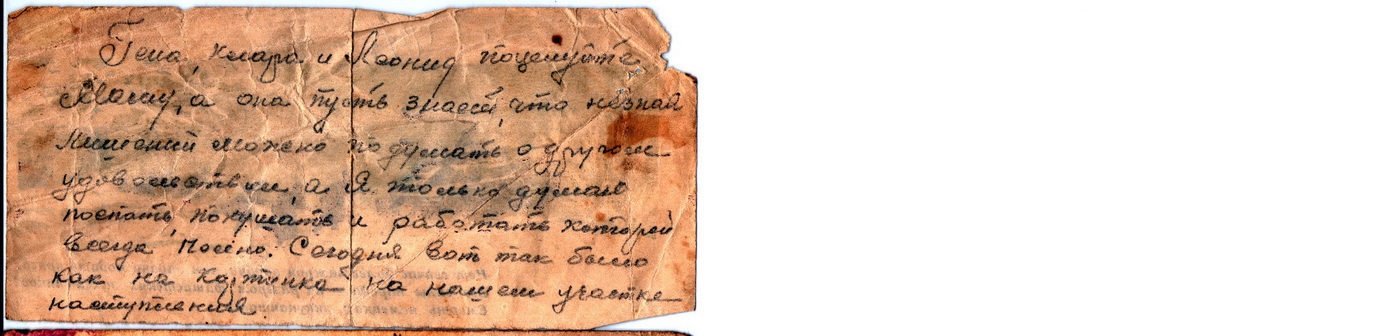 Гена, Клара и Леонид поцелуйте
Мамку, а она пусть знает, что незная
лишений можно подумать о другом
удовольствии, а я только думаю
поспать, покушать и работать которой
всегда полно. Сегодня вот так было
как на картинке на нашем участке
наступления